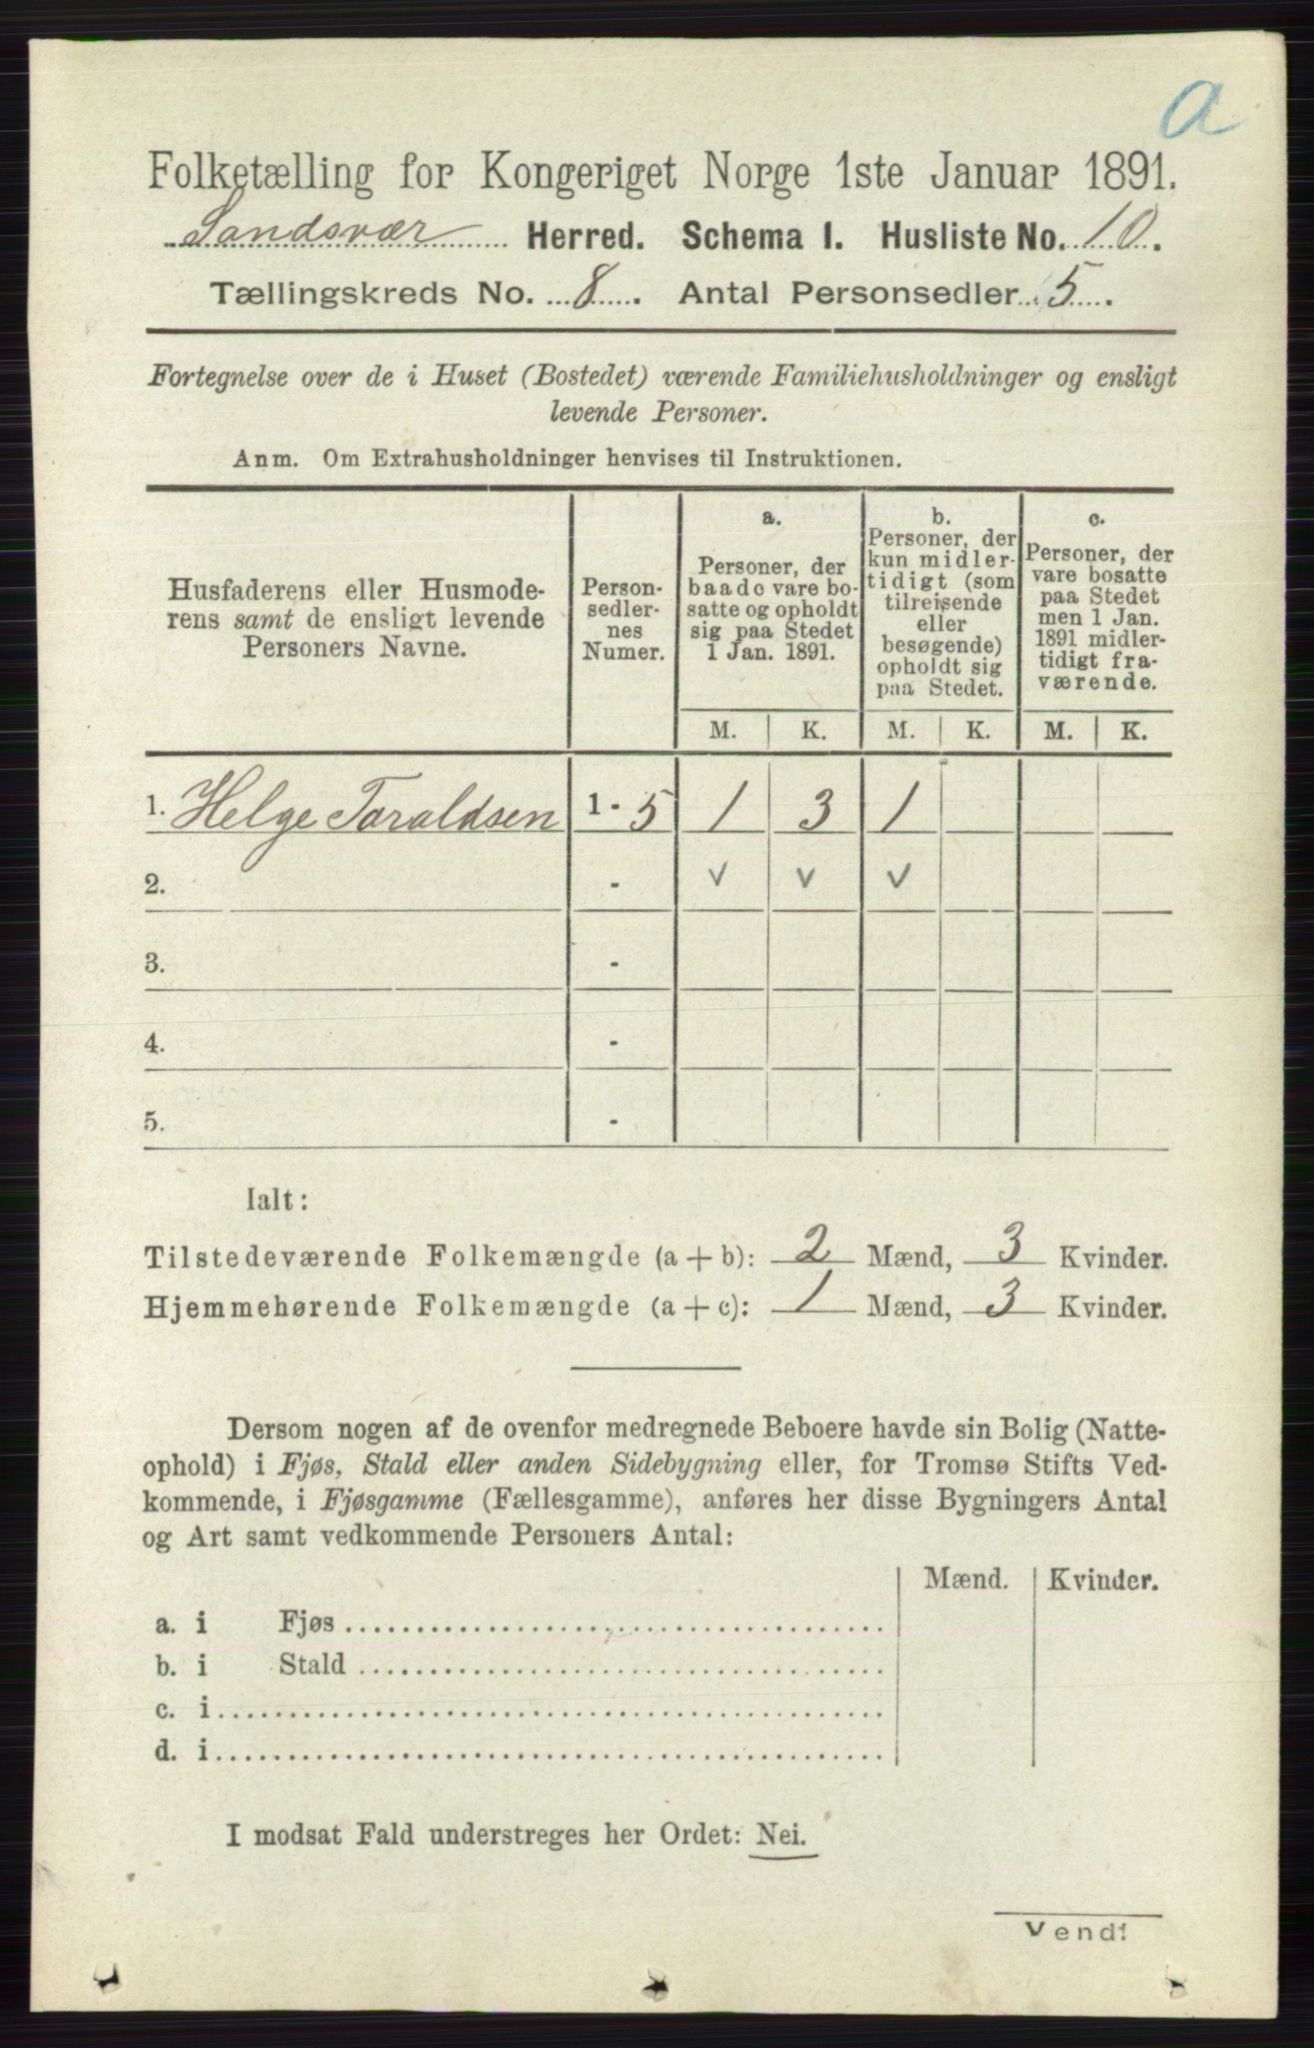 a
Folketælling for Kongeriget Norge 1ste Januar 1891.
Sandsvær Herred. Schema I. Husliste No. 10.
Tællingskreds No. 8. Antal Personsedler 5.
Fortegnelse over de i Huset (Bostedet) værende Familiehusholdninger og ensligt
levende Personer.
Anm. Om Extrahusholdninger henvises til Instruktionen.
Husfaderens eller Husmode-
rens samt de ensligt levende
Personers Navne.
Person-
sedler-
nes
Numer.
a.
Personer, der
baade vare bo-
satte og opholdt
sig paa Stedet
1 Jan. 1891.
b.
Personer, der
kun midler-
tidigt (som
tilreisende
eller
besøgende)
opholdt sig
paa Stedet.
c.
Personer, der
vare bosatte
paa Stedet
men 1 Jan.
1891 midler-
tidigt fra-
værende.
M. K. M. K. M. K.
1. Helge Taraldsen 1 - 5 1 3 1
2. - v v v
3. -
4. -
5. -
Ialt:
Tilstedeværende Folkemængde (a + b): 2 Mænd, 3 Kvinder.
Hjemmehørende Folkemængde (a + c): 1 Mænd, 3 Kvinder.
Dersom nogen af de ovenfor medregnede Beboere havde sin Bolig (Natte-
ophold) i Fjøs, Stald eller anden Sidebygning eller, for Tromsø Stifts Ved-
kommende, i Fjøsgamme (Fællesgamme), anføres her disse Bygningers Antal
og Art samt vedkommende Personers Antal:
Mænd. Kvinder.
a. i Fjøs
b. i Stald
c. i
d. i
I modsat Fald understreges her Ordet: Nei.
Vend!